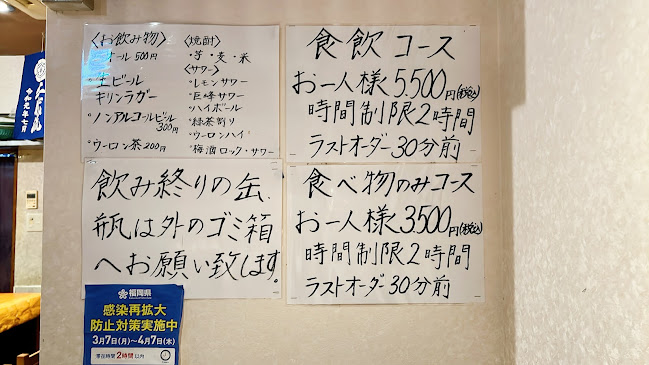 〈お飲み物〉
オール 500円
・生ビール
キリンラガー
・ノンアルコールビール
300円
・ウーロン茶 200円
〈焼酎〉
・芋・麦・米
〈サワー〉
・レモンサワー
・巨峰サワー
・ハイボール
・緑茶割り
・ウーロンハイ
・梅酒ロック・サワー
食飲コース
お一人様5.500円(税込)
時間制限2時間
ラストオーダー30分前
飲み終りの缶、
瓶は外のゴミ箱
へお願い致します。
食べ物のみコース
お一人様3.500円(税込)
時間制限2時間
ラストオーダー30分前
福岡県
感染再拡大
防止対策実施中
3月7日(月)〜4月7日(木)
滞在時間 2時間以内
令和元年七月